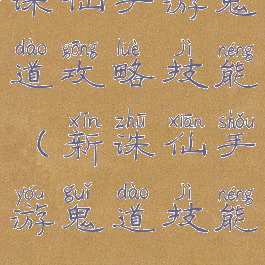 诛仙手游鬼
dào gōng luè jì néng
道攻略技能
xīn zhū xiān shǒu
(新诛仙手
yóu guǐ dào jì néng
游鬼道技能